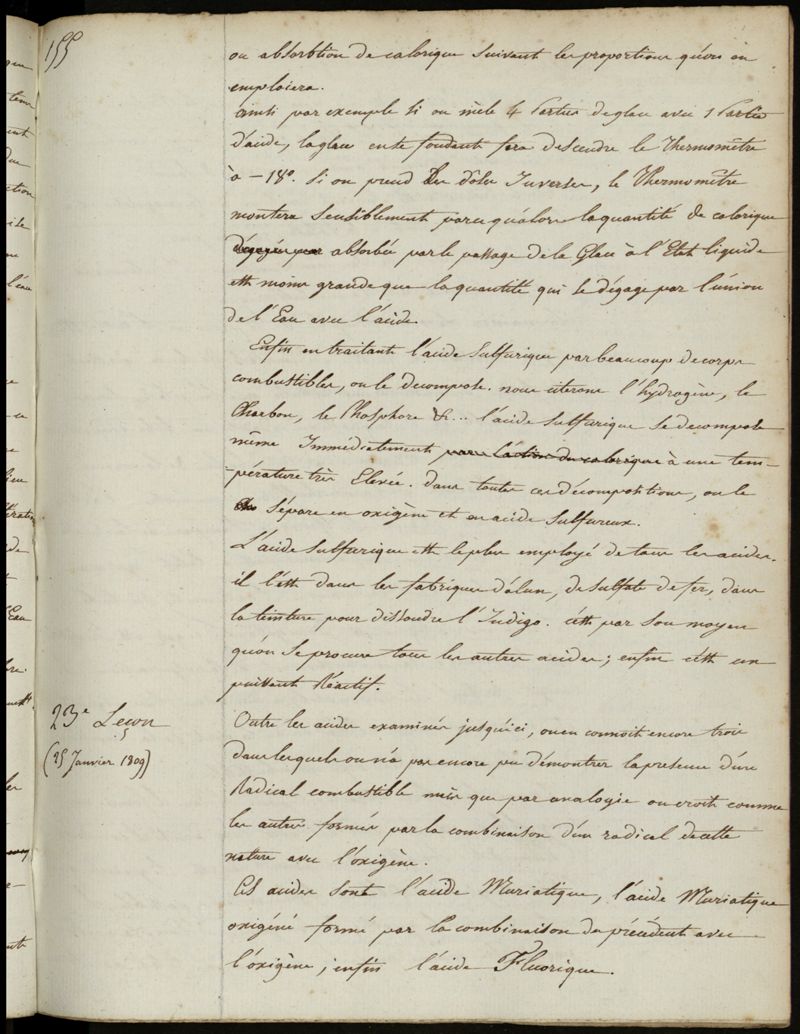 155
ou absorbtion de calorique suivant les proportions qu'on en
emploiera.
ainsi par exemple si on mêle 4 Parties de glace avec 1 Partie
d'acide, la glace en se fondant fera descendre le Thermomètre
à -18°. si on prend les dôses Inverses, le Thermomètre
montera sensiblement parce qu'alors la quantité de calorique
dégagée par absorbée par le passage de la Glace à l'Etat liquide
est moins grande que la quantité qui se dégage par l'union
de l'Eau avec l'acide.
Enfin en traitant l'acide Sulfurique par beaucoup de corps
combustibles, on le decompose. nous citerons l'hydrogène, le
Charbon, le Phosphore &c... l'acide sulfurique se decompose
même Immédiatement par l'action du calorique à une tem-
-pérature très Elevée. dans toutes ces décompositions, on le
sépare en oxigène et en acide sulfureux.
L'acide sulfurique est le plus employé de tous les acides.
il l'est dans les fabriques d'alun, de sulfate de fer, dans
la teinture pour dissoudre l'Indigo. c'est par son moyen
qu'on se procure tous les autres acides; enfin c'est un
puissant Réactif.
23e Leçon
(25 Janvier 1809)
Outre les acides examinés jusqu'ici, on en connoit encore trois
dans lesquels on n'a pas encore pu démontrer la presence d'un
Radical combustible mais que par analogie on croit comme
les autres formés par la combinaison d'un radical de cette
nature avec l'oxigène.
Ces acides sont l'acide Muriatique, l'acide Muriatique
oxigéné formé par la combinaison du précédent avec
l'oxigène, enfin l'acide Fluorique.